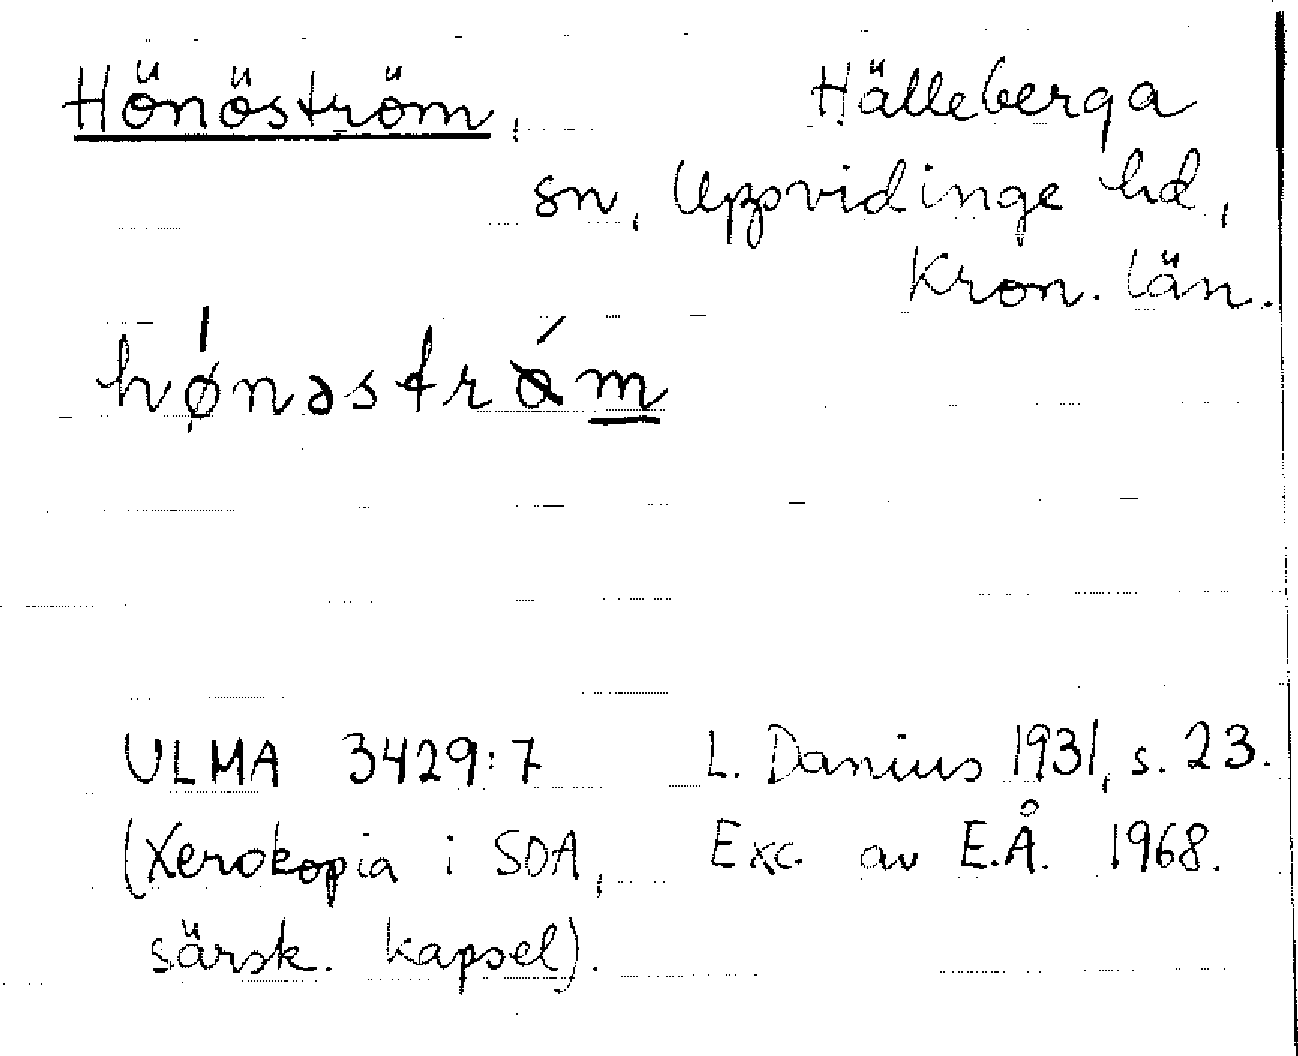 Hönöström, Hälleberga
sn, Uppvidinge hd,
Kron. län.
hǿnəstrǿm
ULMA 3429:7 L. Danius 1931, s. 23.
(Xerokopia i SOA, Exc. av E.Å. 1968.
särsk. kapsel).